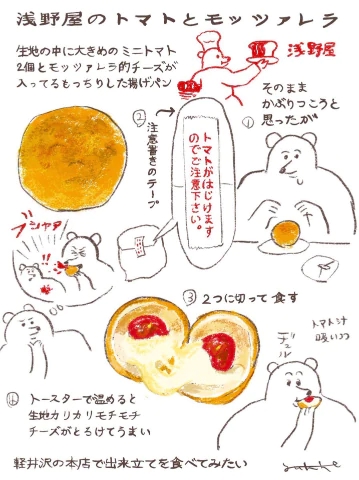 浅野屋のトマトとモッツァレラ
生地の中に大きめのミニトマト
2個とモッツァレラ的チーズが
入ってるもっちりした揚げパン
浅野屋
そのまま
かぶりつこうと
思ったが
①
②
注意書きのテープ
トマトがはじけます
のでご注意下さい。
ブシャァ
!!
③ 2つに切って食す
トマト汁
吸いつつ
ヂュル
④ トースターで温めると
生地カリカリモチモチ
チーズがとろけてうまい
軽井沢の本店で出来立てを食べてみたい